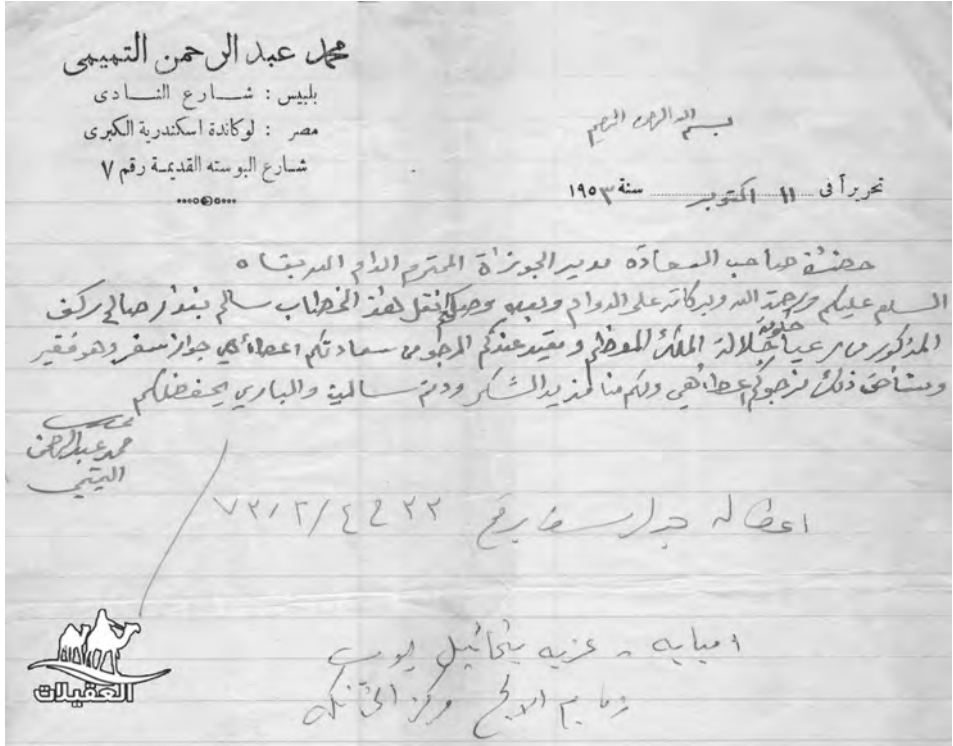 محمد عبد الرحمن التميمى
بلبيس : شارع النادى
مصر : لوكاندة اسكندرية الكبرى
شارع البوسته القديمة رقم ٧
بسم الله الرحمن الرحيم
تحريراً فى ١١ اكتوبر سنة ١٩٥٣
حضرة صاحب السعادة مدير الجوزاة المحترم الدام الله بقاه
السلام عليكم ورحمة الله وبركاته على الدوام وبعده وصلكم انقل هذا الخطاب سالم بندر صالح
المذكور من رعيا جلالة الملك المعظم ومقيد عندكم المرجو من سعادتكم اعطائه جواز سفر وهو فقير
ومستاحق ذلك نرجوكم اعطائه ولكم منا مزيد الشكر ودمتم سالمين والباري يحفضكم
محمد عبد الرحمن
التميمي
اعطى له جواز سفر برقم ٢٣ في ٧٣/٢/٤
امبابه - عزبه
مركز الخانكه
العقيلات